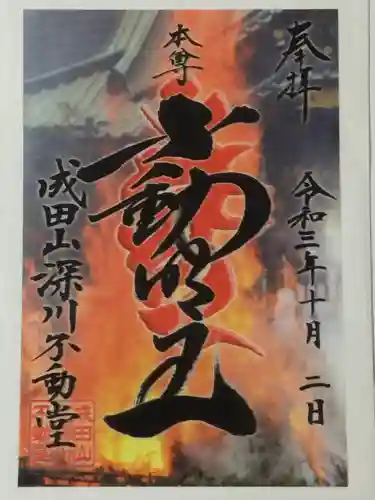 奉拝
令和三年十月二日
本尊
不動明王
成田山深川不動堂